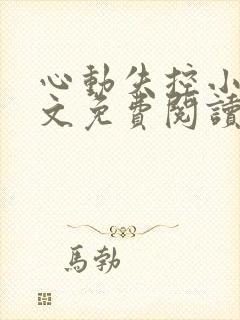 心動失控小
文免費閱讀
馬勃